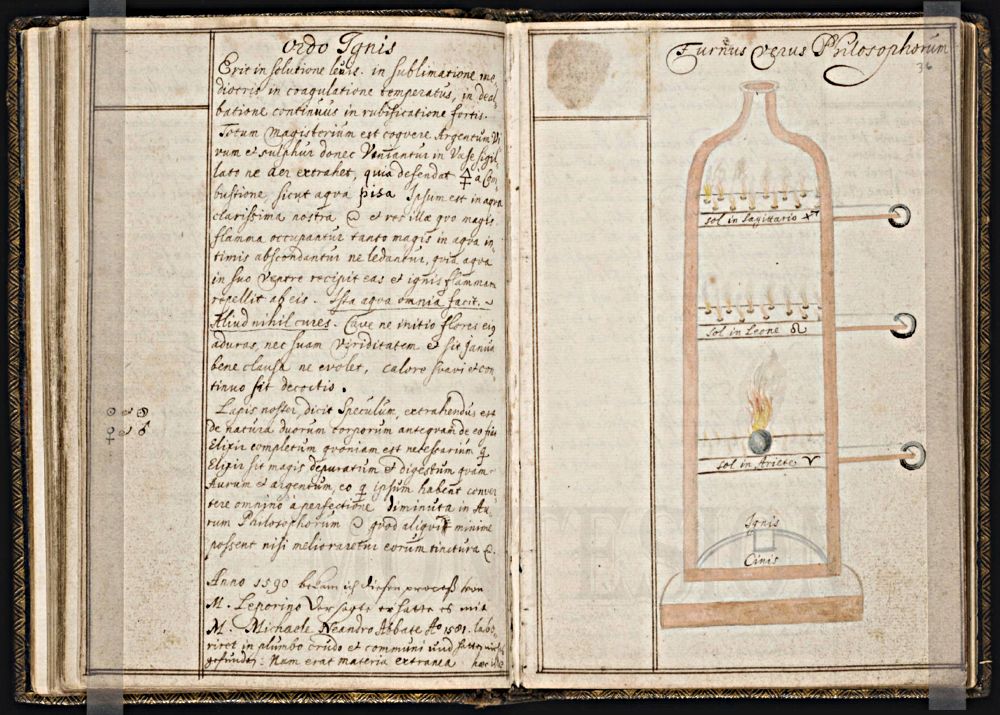 Ordo Ignis
Erit in solutione levis. in sublimatione me
diocris in coagulatione temperatus, in deal
batione continuus in rubificatione fortis.
Totum magisterium est coqvere Argentum Vi
vum et sulphur donec Veniantur in Vase sigil
lato ne aer extrahet, quia defendat 🜍 a Com
bustione sicut aqva pisa Ipsum est in aqva
clarissima nostra et qvo magis
flamma occupantur tanto magis in aqva in
timis abscondantur ne ledantur, qvia aqva
in suo Ventre recipit eas et ignis flammam
repellit ab eis. Ista aqva omnia facit.
Aliud nihil cures. Cave ne initio flores ei9
aduras, nec suam Viriditatem & sit Janua
bene clausa ne evolet, calore svavi et con
tinuo fit decoctio.
Lapis noster, dicit Speculum, extrahendus est
de natura duorum corporum anteqvam de eo fiat
Elixir completum qvoniam est necessarium q̃
Elixir sit magis depuratum & digestum qvam
Aurum et argentum, eo q̃ ipsum habent conver
tere omnino a perfectione diminuta in Au
rum Philosophorum qvod aliqvid minime
possent nisi melioraretur eorum tinctura
☉ ☍ ☉
♀ ☍ ♂
Anno 1590 bekam ich diesen process von
M. Leporino Der sagte er hatte es mit
M. Michaele Neandro Abbate Ao 1581. labo
riret in plumbo crudo et communi und hatten nichts
gefunden: Nam erat materia extranea hæc
Furnus verus Philosophorum
36
sol in Sagittario ♐
sol in Leone ♌
sol in Ariete ♈
Ignis
Cinis